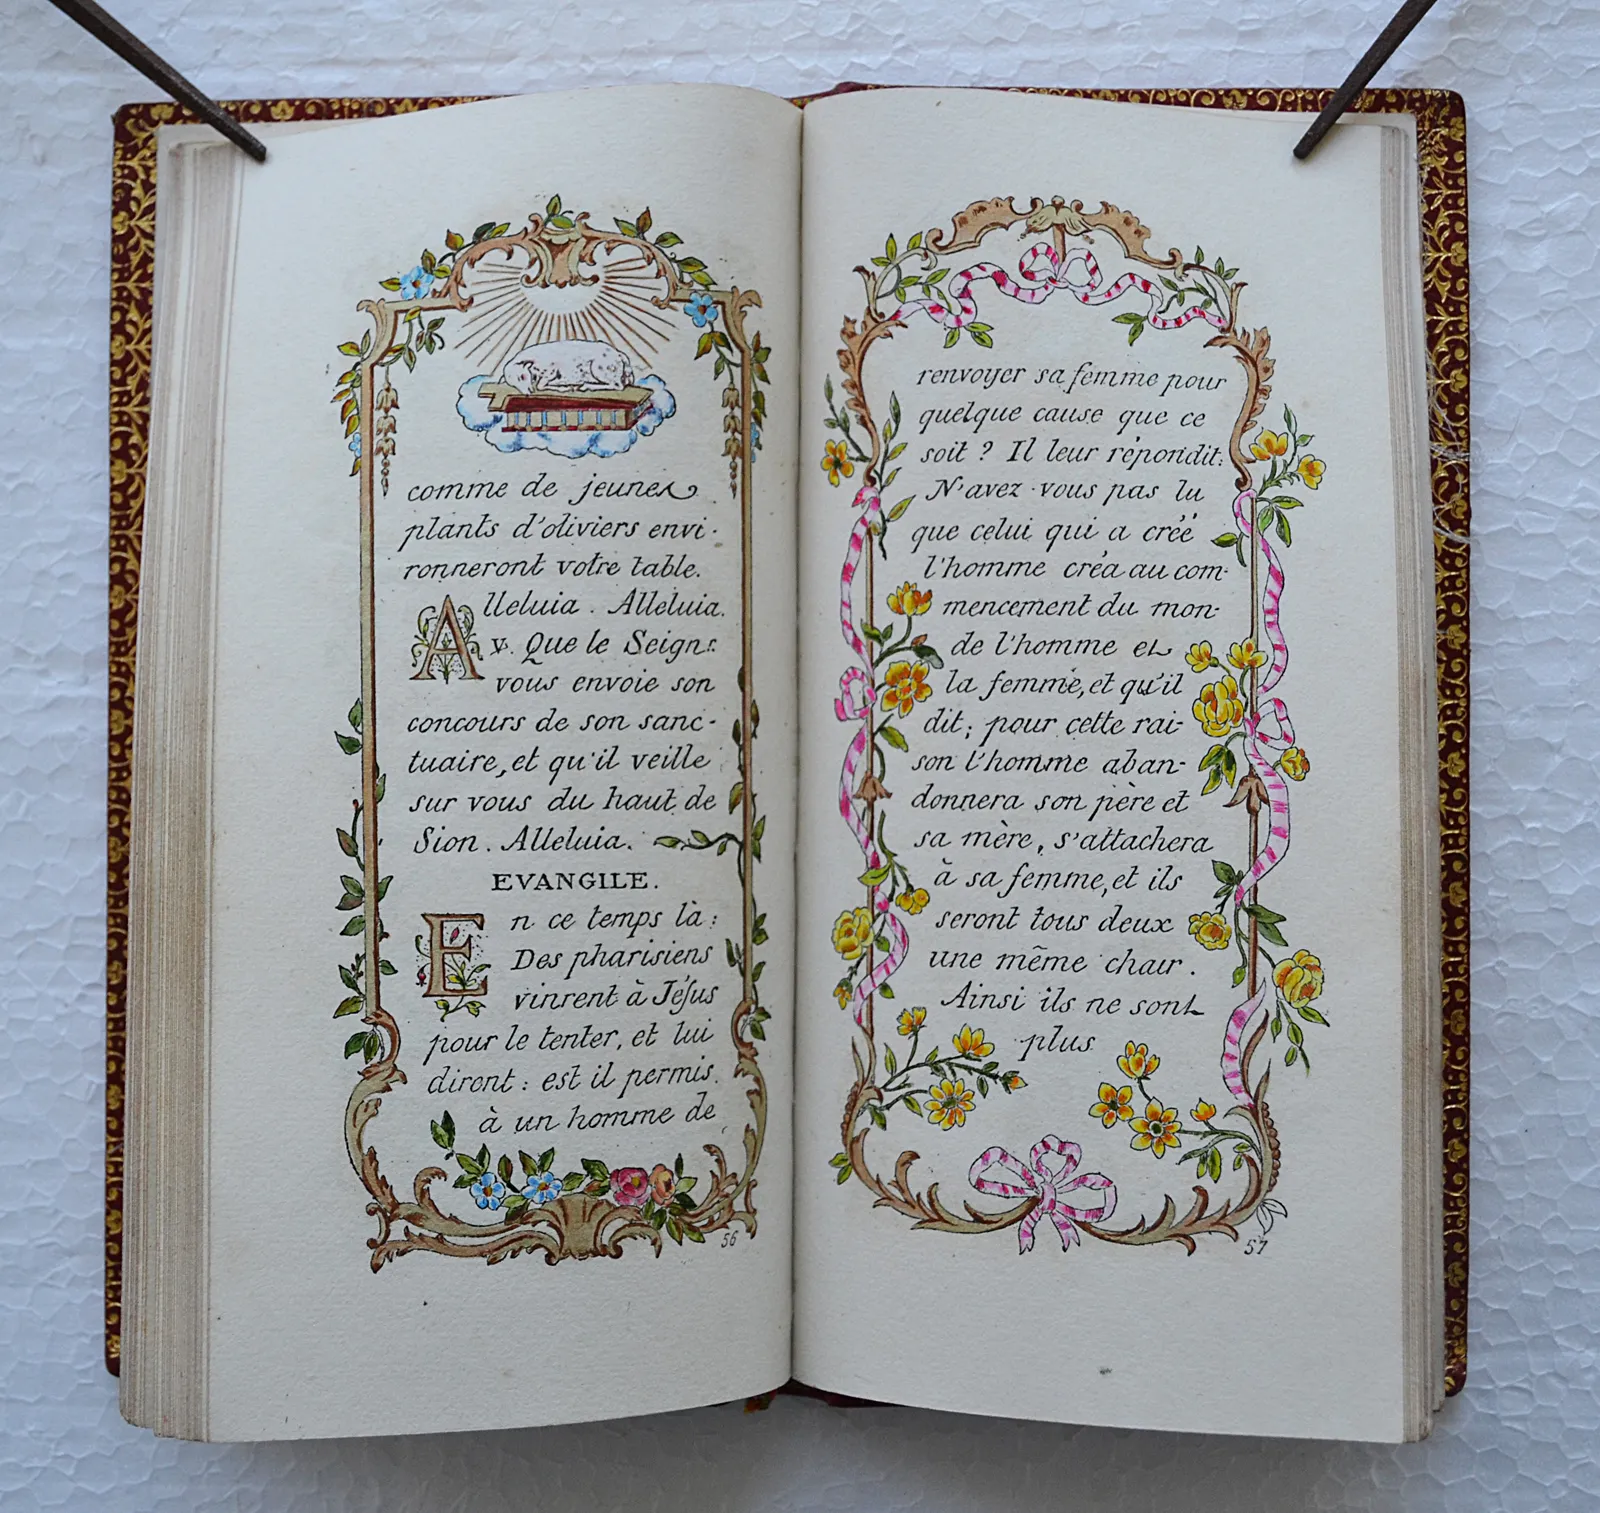 comme de jeunes
plants d'oliviers envi-
ronneront votre table.
Alleluia. Alleluia.
℣. Que le Seigr.
vous envoie son
concours de son sanc-
tuaire, et qu'il veille
sur vous du haut de
Sion. Alleluia.
EVANGILE.
En ce temps là:
Des pharisiens
vinrent à Jésus
pour le tenter, et lui
dirent: est il permis
à un homme de
56
renvoyer sa femme pour
quelque cause que ce
soit? Il leur répondit:
N'avez-vous pas lu
que celui qui a créé
l'homme créa au com-
mencement du mon-
de l'homme et
la femme, et qu'il
dit; pour cette rai-
son l'homme aban-
donnera son père et
sa mère, s'attachera
à sa femme, et ils
seront tous deux
une même chair.
Ainsi ils ne sont
plus
57